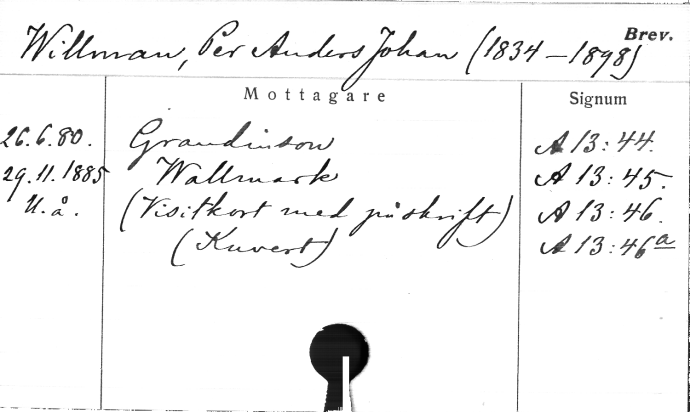 Brev.
Willman, Per Anders Johan (1834–1898)
Mottagare Signum
26.6.80. Grandinson A 13:44.
29.11.1885 Wallmark A 13:45.
U.å. (Visitkort med påskrift) A 13:46.
(Kuvert) A 13:46a